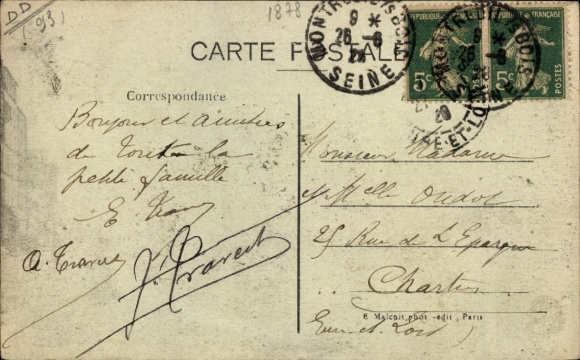 DD
(93)
1878
CARTE POSTALE
MONTREUIL S BOIS
9 *
26 - 6
SEINE
REPUBLIQUE FRANÇAISE
5c
POSTES
5c
MONTREUIL S BOIS
SEINE
EURE-ET-LOIR
Correspondance
Bonjour et amitiés
de toute la
petite famille
Monsieur Madame
et Melle Oudot
25 Rue de L'Epargne
Chartres
Eure-et-Loir
E. Malcuit phot.-édit., Paris